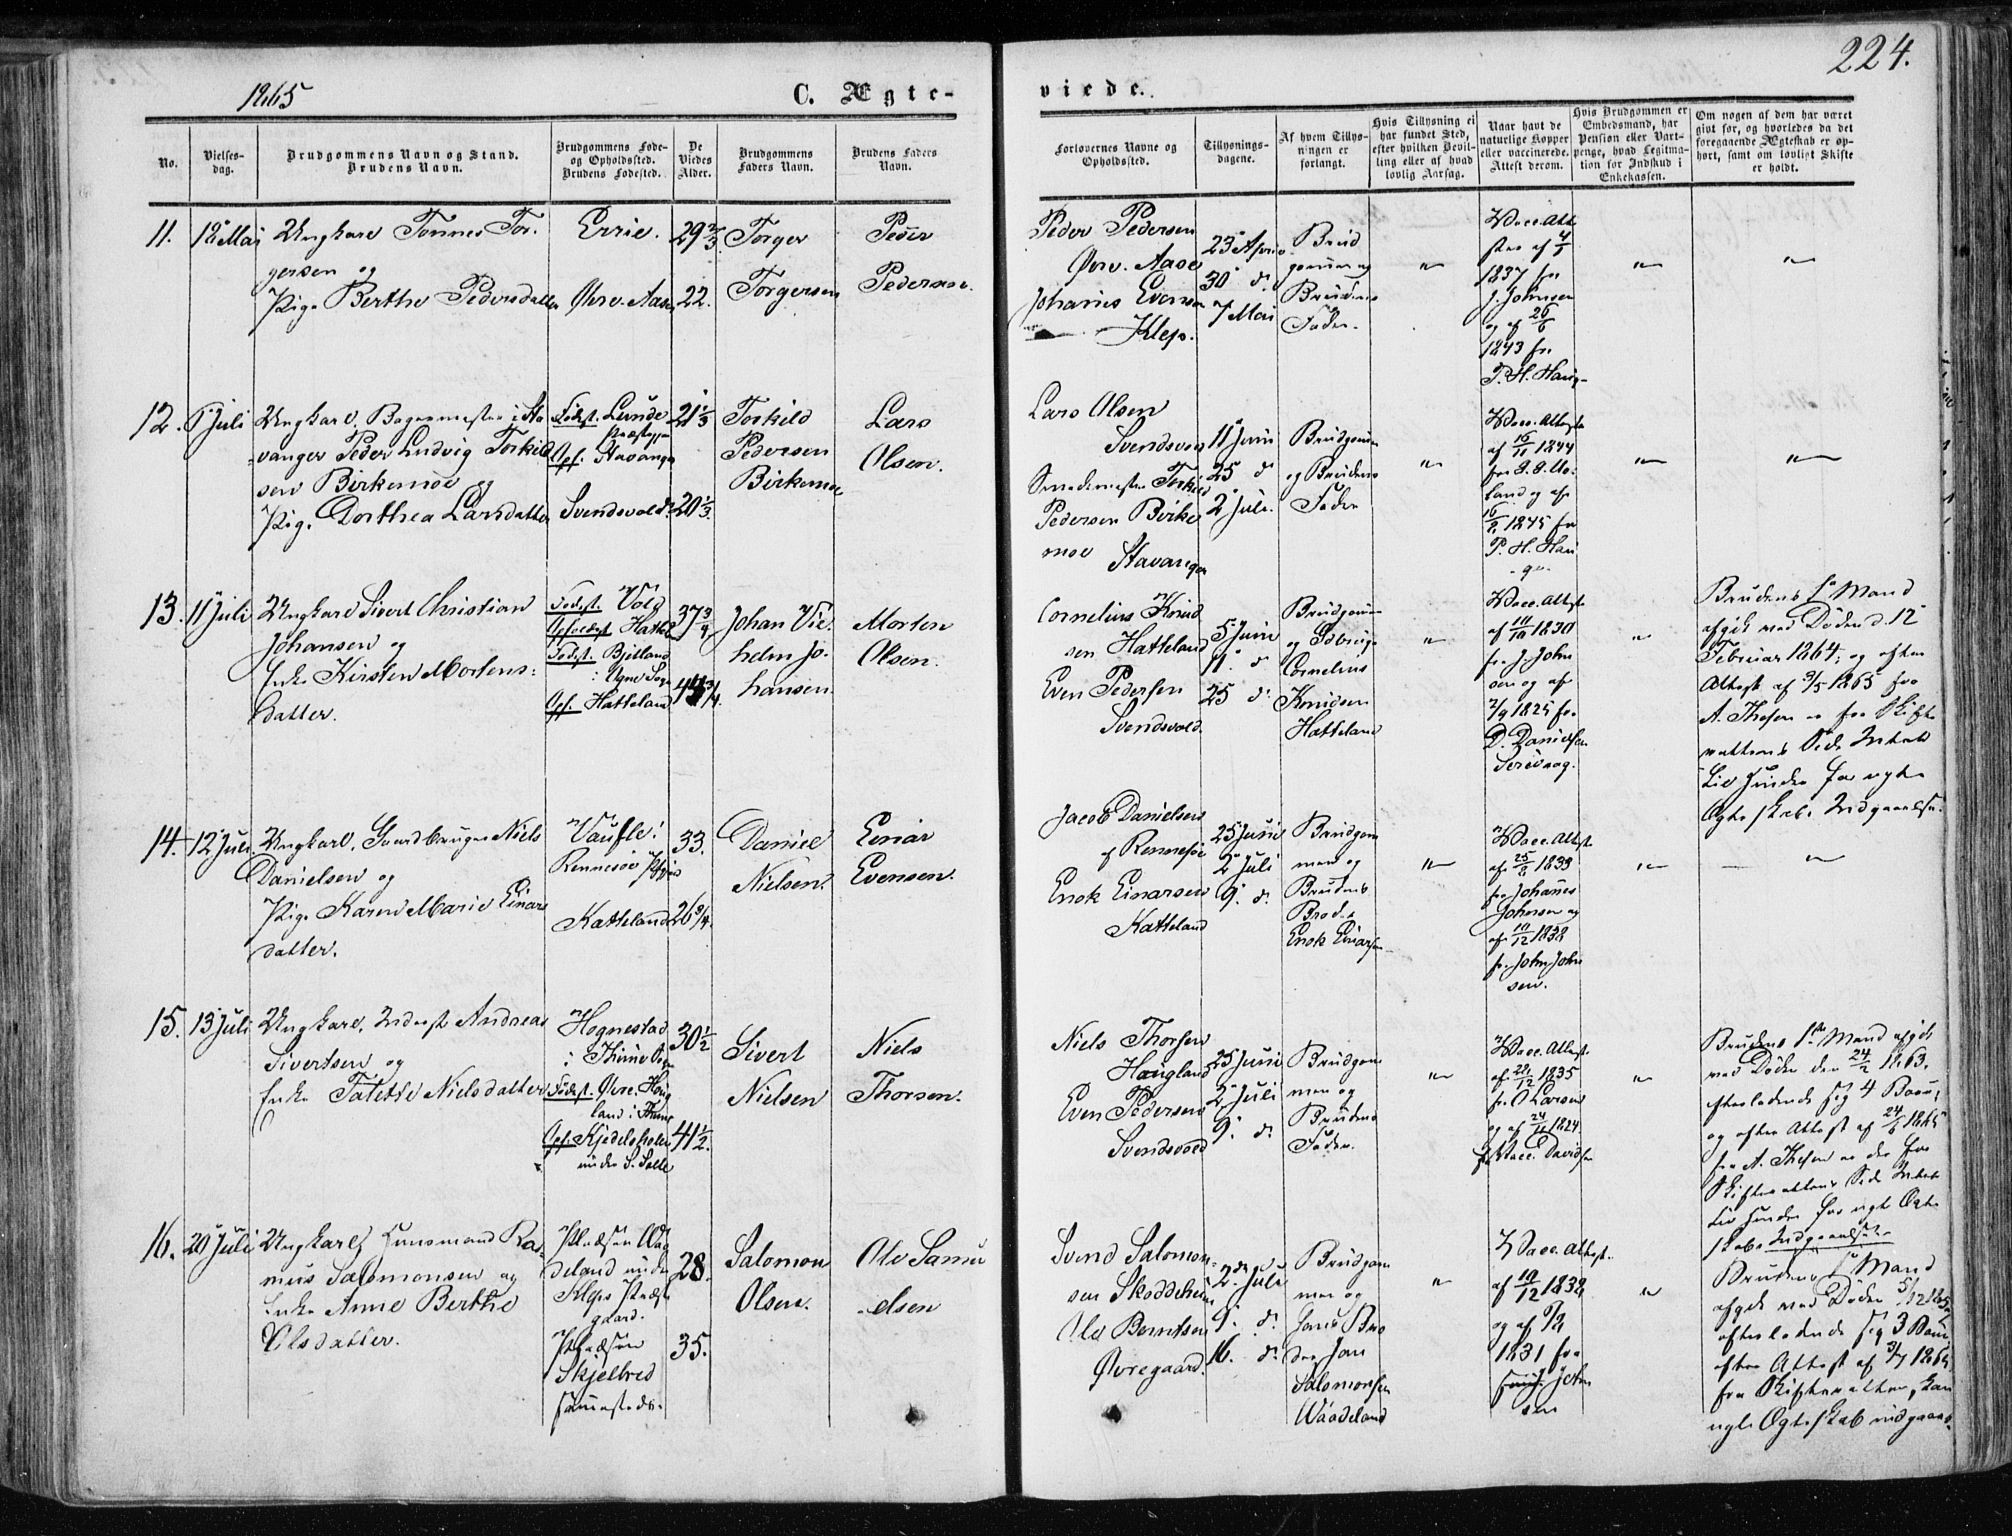 224.
1865
C. Ægte-
viede.
No.
Vielses-
dag.
Brudgommens Navn og Stand.
Brudens Navn.
Brudgommens Føde-
og Opholdssted.
Brudens Fødested.
De
Viedes
Alder.
Brudgommens
Faders Navn.
Brudens Faders
Navn.
Forlovernes Navne og
Opholdssted.
Tillysnings-
dagene.
Af hvem Tillys-
ningen er
forlangt.
Hvis Tillysning ei
har fundet Sted,
efter hvilken Bevil-
ling eller af hvad
lovlig Aarsag.
Naar havt de
naturlige Kopper
eller vaccinerede.
Attest derom.
Hvis Brudgommen er
Embedsmand, har
Pension eller Vart-
penge, hvad Legitima-
tion for Indskud i
Enkekassen.
Om nogen af dem har været
givt før, og hvorledes da det
foregaaende Ægteskab er op-
hørt, samt om lovligt Skifte
er holdt.
11.
12 Mai
Ungkarl Tønnes Tor-
gersen og
Pige Berthe Pedersdatter
Øvre. Aase
29 2/3
22.
Torger
Torgersen
Peder
Pedersen.
Peder Pedersen
Øvre. Aase
Johanes Evensen
Klep.
23 April
30 d.
7 Mai
Brud
gommen og
Brudens
Fader.
Vacc. Att
ster af 4/5
1837 fr.
J. Johnsen
og af 26/6
1843 fr.
P. H. Haug-
12.
Juli
Ungkarl, Bagermester i Sta
vanger Peder Ludvig Torkild
sen Birkemoe og
Pige Dorthea Larsdatter
Fødest. Lunde
Præstegj.
Opf. Stavanger
Svendsvold.
21 1/3
20 1/3.
Torkild
Pedersen
Birkemoe
Lars
Olsen.
Lars Olsen
Svendsvold
Smedemester Torkild
Pedersen Birke
moe Stavanger
11 Juni
25 d
2 Juli.
Brudgom
og Brudens
Fader
Vacc. Attester
af 16/11 1844
og af
1845 fra
P. H. Hau
g
13.
11 Juli
Ungkarl Sivert Christian
Johansen og
Enke Kirsten Mortens-
datter.
Fødest. Vold
Opholdst Hattel
Fødest. Bjelland
i Ogne Sogn
Opf. Hatteland
37 3/4
Johan Vil-
helm Jo-
hansen
Morten
Olsen.
Cornelius Knud
sen Hatteland
Even Pedersen
Svendsvold.
5 Juni
11. d
25 d.
Brudgom
og
Cornelius
Knudsen
Hatteland
Vacc. Attest
af 11/10 1830
fr. J. John
sen og af
2/9 1825 fr.
D. Danielsen
Brudens 1ste Mand
afgik ved Døden d. 12
Februar 1864, og efter
Attest af 3/5 1865 fra
A. Thesen er fra Skifte
rettens Side Intet
til Hinder for nyt
Ægteskabs Indgaaelse.
14.
12 Juli.
Ungkarl, Gaardbruger Niels
Danielsen og
Pige Karen Marie Einars
datter.
Rennesøe
Hatteland
33.
26 3/4.
Daniel
Nielsen.
Einar
Evensen.
Jacob Danielsen
Rennesøe
Enok Einarsen
Hatteland
25 Juni
2 Juli
9. d.
Brudgom
men og
Brudens
Broder
Enok Einarsen
Vacc. Attest
af 25/8 1833
fr. Johanes
Johnsen og
af 10/12 1838
fr. John John
sen.
15.
13 Juli
Ungkarl, Inderst Andreas
Sivertsen og
Enke Talette Nielsdatter
Hognestad
i Thime Sogn
Fødest. Øvre. Houg
land i Thime
Opf. Kjedelsholen
under S. Salte
30 1/2
41 1/2.
Sivert
Nielsen
Niels
Thorsen.
Niels Thorsen
Haugland
Even Pedersen
Svendsvold
25 Juni
2 Juli
9. d.
Brudgom
men og
Brudens
Fader.
Vacc. Attest
af 1835
fr. O Larsen
og af 24/11 1824
fr. Vacc. Davidsen
Brudens 1ste Mand afgik
ved Døden den 24/2 1863.
efterladende sig 4 Børn,
og efter Attest af 24/6 1865
fra A. Thesen er der fra
Skifterettens Side Intet
til Hinder for nyt Ægte
skabs Indgaaelse.
16.
20 Juli
Ungkarl, Huusmand Ras-
mus Salomonsen og
Enke Anne Berthe
Olsdatter.
Pladsen Waa
deland under
Klep Præste
gaard.
Pladsen
Skjelbred
sammesteds.
28.
35.
Salomon
Olsen.
Ole Samu
elsen
Svend Salomon-
sen Skaddeheim
Ole Berntsen
Øvregaard.
2. Juli
9. d.
16. d.
Brudgom
men og
Bro
der Jon
Salomonsen
Waadeland
Vacc. Attest.
af 10/12 1838
og af
1831 fra
John
sen
Brudens 1ste Mand
afgik ved Døden
efterladende sig 3 Børn,
efter Attest af 3/7 1865
fra Skifteretten, kan
nyt Ægteskab indgaaes.